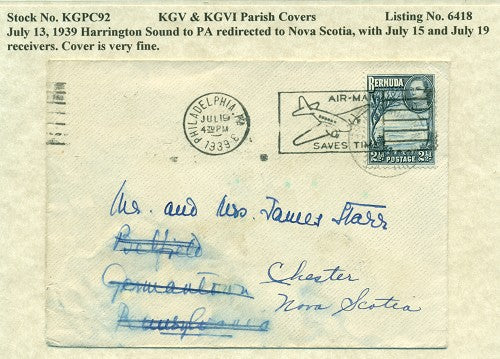 Stock No. KGPC92 KGV & KGVI Parish Covers Listing No. 6418
July 13, 1939 Harrington Sound to PA redirected to Nova Scotia, with July 15 and July 19
receivers. Cover is very fine.
PHILADELPHIA, PA
JUL 15
4 PM
1939
AIR-MA
SAVES TIME
BERMUDA
2½ POSTAGE 2½
Mr. and Mrs. James Starr
Germantown
Pennsylvania
Chester
Nova Scotia